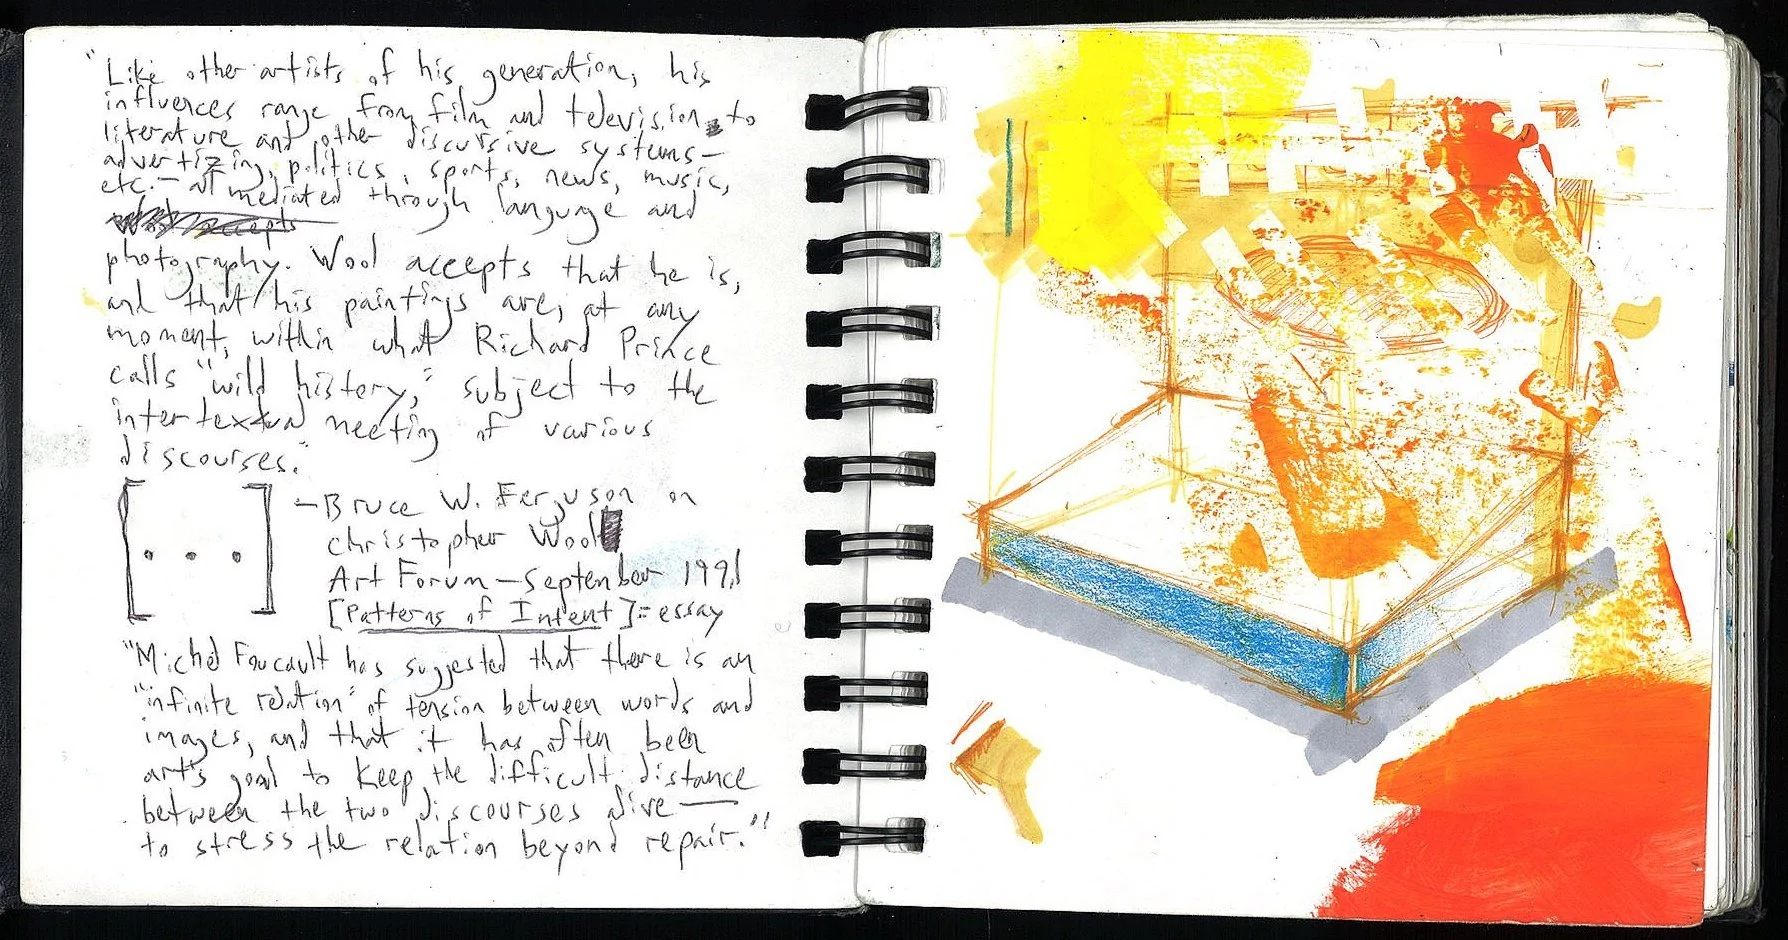 "Like other artists of his generation, his
influences range from film and television to
literature and other discursive systems—
advertizing, politics, sports, news, music,
etc.— all mediated through language and
photography. Wool accepts that he is,
and that his paintings are, at any
moment, within what Richard Prince
calls "wild history," subject to the
intertextual meeting of various
discourses."
[...]
—Bruce W. Ferguson on
Christopher Wool
Art Forum—September 1991
[Patterns of Intent]=essay
"Michel Foucault has suggested that there is an
"infinite relation" of tension between words and
images, and that it has often been
art's goal to keep the difficult distance
between the two discourses alive—
to stress the relation beyond repair."